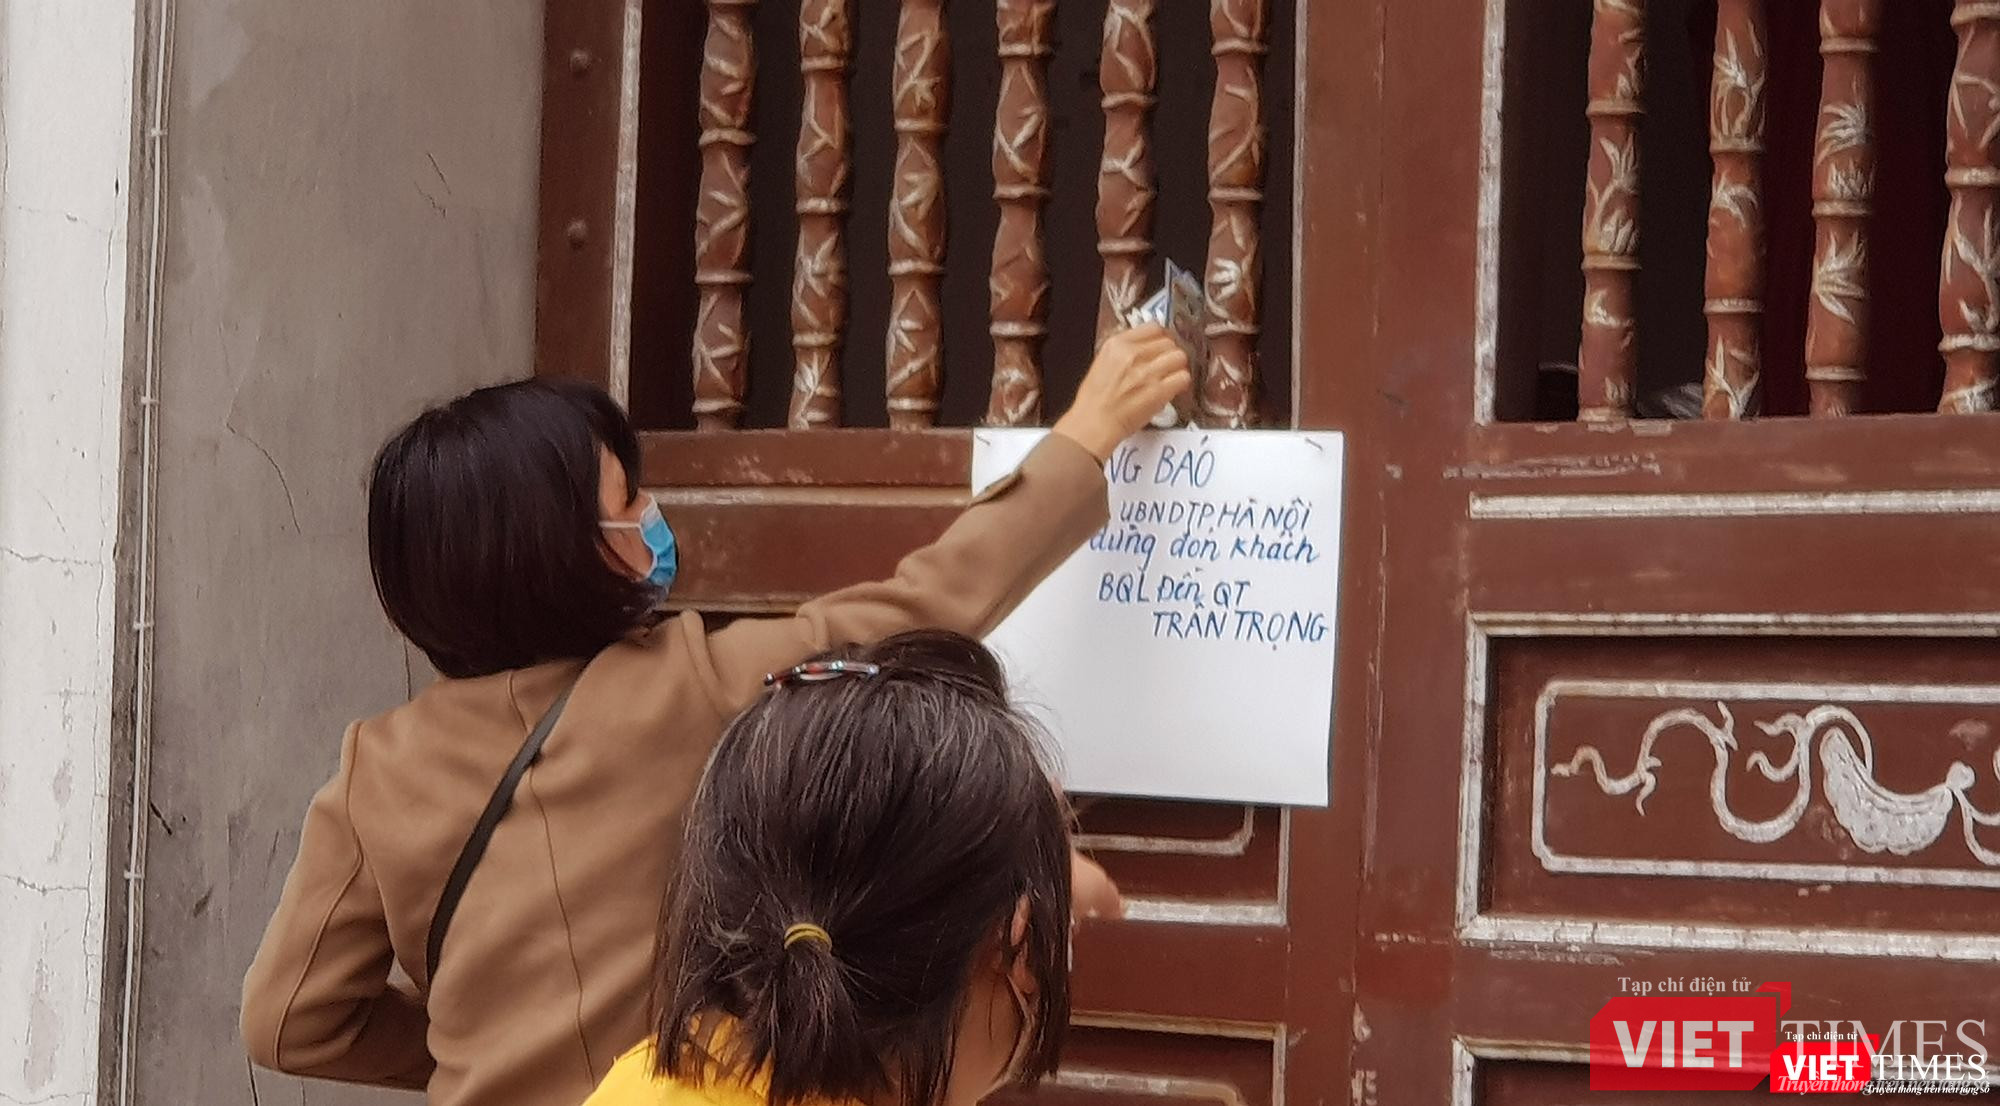 NG BÁO
UBNDTP.HÀ NỘI
dừng đón khách
BQL Đền QT
TRÂN TRỌNG
Tạp chí điện tử
VIET TIMES
Tạp chí điện tử
VIET TIMES
Truyền thông trên nền tảng số